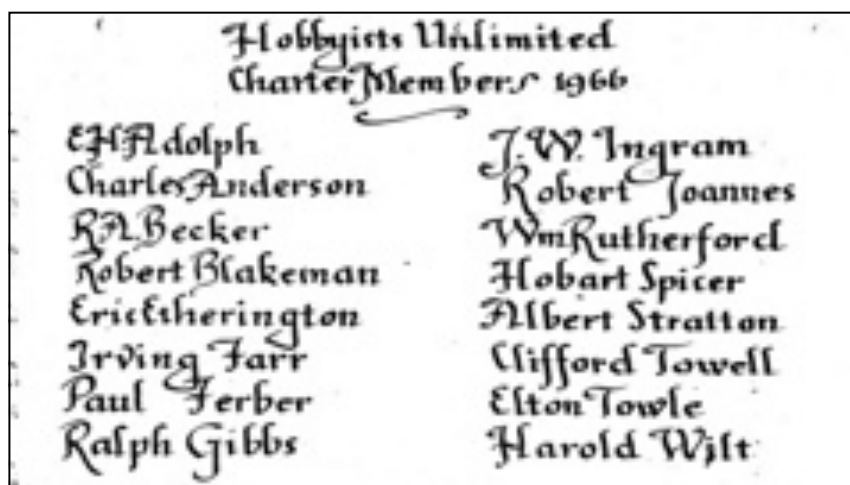 Hobbyists Unlimited
Charter Members 1966
E.H. Adolph
Charles Anderson
R.A. Becker
Robert Blakeman
Eric Etherington
Irving Farr
Paul Ferber
Ralph Gibbs
J.W. Ingram
Robert Joannes
Wm Rutherford
Hobart Spicer
Albert Stratton
Clifford Towell
Elton Towle
Harold Wilt